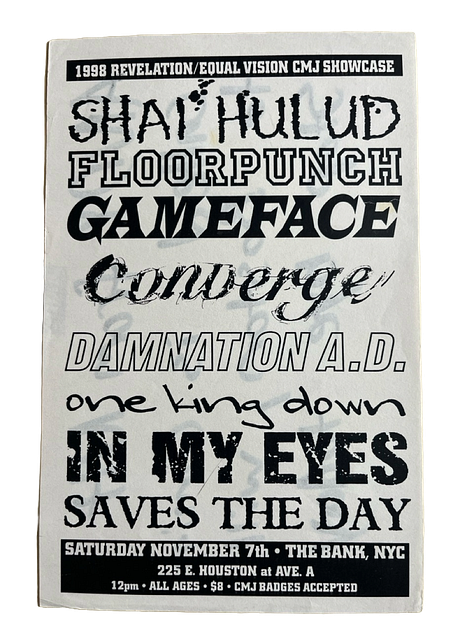 1998 REVELATION/EQUAL VISION CMJ SHOWCASE
SHAI HULUD
FLOORPUNCH
GAMEFACE
Converge
DAMNATION A.D.
one king down
IN MY EYES
SAVES THE DAY
SATURDAY NOVEMBER 7th • THE BANK, NYC
225 E. HOUSTON at AVE. A
12pm • ALL AGES • $8 • CMJ BADGES ACCEPTED